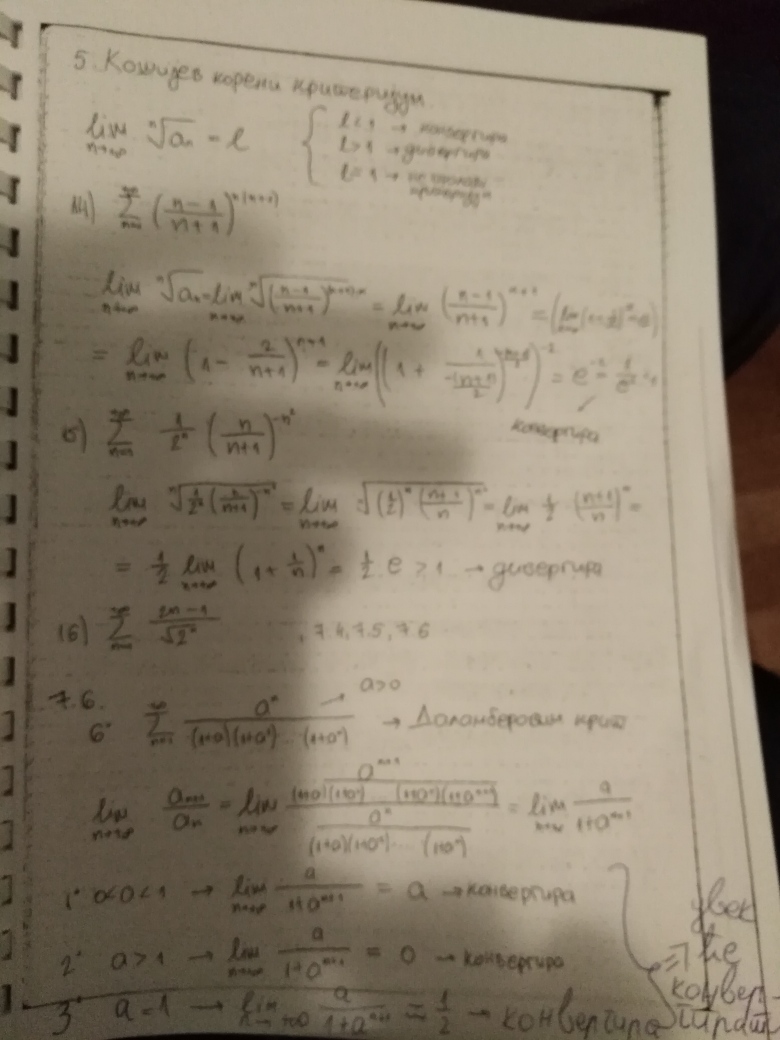 5. Кошијев корени критеријум
lim n→∞ ⁿ√aₙ = l { l < 1 → конвергира
l > 1 → дивергира
l = 1 → не
критеријум
∑ n=1 ∞ ((n-1)/(n+1))^(n(n+1))
lim n→∞ ⁿ√aₙ = lim n→∞ ⁿ√(((n-1)/(n+1))^((n+1)·n)) = lim n→∞ ((n-1)/(n+1))^(n+1) = (lim n→∞ (1+1/n)^n = e)
= lim n→∞ (1 - 2/(n+1))^(n+1) = lim n→∞ ((1 + 1/(-(n+1)/2))^(-(n+1)/2))^(-2) = e^(-2) = 1/e² < 1
конвергира
б) ∑ n=1 ∞ 1/2ⁿ (n/(n+1))^(-n²)
lim n→∞ ⁿ√(1/2ⁿ (n/(n+1))^(-n²)) = lim n→∞ ⁿ√((1/2)ⁿ ((n+1)/n)^(n²)) = lim n→∞ 1/2 ((n+1)/n)ⁿ =
= 1/2 lim n→∞ (1 + 1/n)ⁿ = 1/2 · e > 1 → дивергира
1б) ∑ n=1 ∞ (2n-1)/√2ⁿ , 7.4, 7.5, 7.6
7.6.
6° ∑ n=1 ∞ aⁿ/((1+a)(1+a²)...(1+aⁿ)) → a>0 → Даламберовим крит
lim n→∞ aₙ₊₁/aₙ = lim n→∞ (aⁿ⁺¹/((1+a)(1+a²)...(1+aⁿ)(1+aⁿ⁺¹)))/(aⁿ/((1+a)(1+a²)...(1+aⁿ))) = lim n→∞ a/(1+aⁿ⁺¹)
1° 0<a<1 → lim n→∞ a/(1+aⁿ⁺¹) = a → конвергира
2° a>1 → lim n→∞ a/(1+aⁿ⁺¹) = 0 → конвергира
3° a=1 → lim n→+∞ a/(1+aⁿ⁺¹) = 1/2 → конвергира
⇒ увек
ће
конвер-
гирати